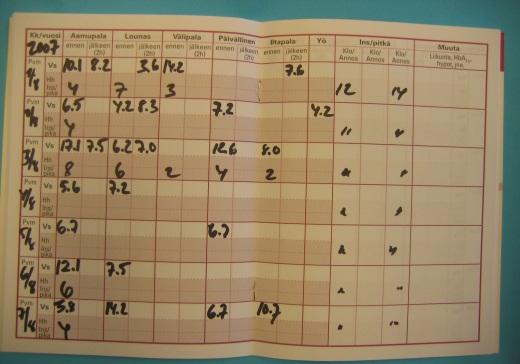 Kk/vuosi Aamupala Lounas Välipala Päivällinen Iltapala Yö Ins/pitkä Muuta
2007 ennen jälkeen (2h) ennen jälkeen (2h) ennen jälkeen (2h) ennen jälkeen (2h) ennen jälkeen (2h) Klo/Annos Klo/Annos Klo/Annos Liikunta, HbA1c, hypot, jne.
Pvm 1/8 Vs 10.1 8.2 3.6 14.2 7.6
Hh
Ins/pika 4 7 3 12 14
Pvm Vs 6.5 4.2 8.3 7.2 4.2
Hh
Ins/pika 4 "
Pvm 3/8 Vs 17.1 7.5 6.2 7.0 12.6 8.0
Hh
Ins/pika 8 6 2 4 2
Pvm 4/8 Vs 5.6 7.2
Hh
Ins/pika
Pvm 5/8 Vs 6.7 6.7
Hh
Ins/pika
Pvm 6/8 Vs 12.1 7.5
Hh
Ins/pika 6
Pvm 7/8 Vs 5.8 14.2 6.7 10.7
Hh
Ins/pika 4